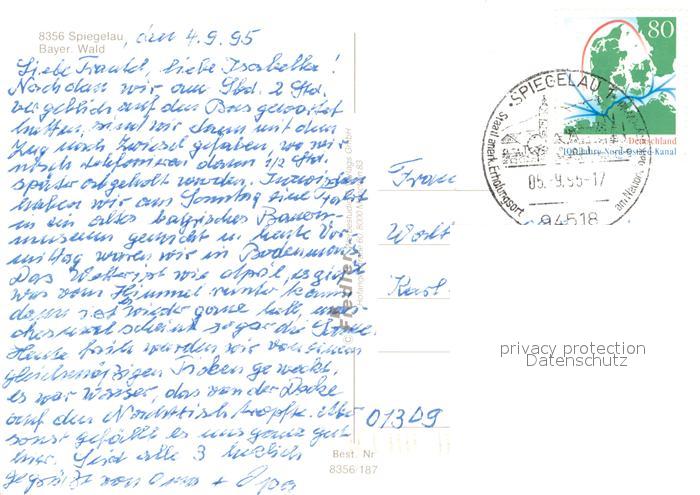 8356 Spiegelau
Bayer. Wald
, den 4.9.95
Liebe Traudel, liebe Isabella!
Nachdem wir am Sbd. 2 Std.
vergeblich auf den Bus gewartet
hatten, sind wir dann mit dem
Zug nach Zwiesel gefahren, wo wir
telefonieren dann 1/2 Std.
später abgeholt wurden. Inzwischen
haben wir am Sonntag eine Fahrt
in ein altes bayrisches Bauern-
museum gemacht u. heute Vor-
mittag waren wir in Bodenmais.
Das Wetter ist wie April, es gießt
was vom Himmel runter kann,
dann ist wieder ganz hell, und
manchesmal scheint sogar die Sonne.
Heute früh wurden wir von einem
gleichmäßigen Ticken geweckt,
es war Wasser, das von der Decke
auf den Nachttisch tropfte. Aber
sonst gefällt es uns ganz gut
hier. Seid alle 3 herzlich
gegrüßt von Oma + Opa
Frau
Karl
01309
Best. Nr
8356/187
Fiedler
80
Deutschland
100 Jahre Nord-Ostsee-Kanal
SPIEGELAU
Staatl. anerk. Erholungsort
am Nation.
05.-9.95-17
94518
privacy protection
Datenschutz